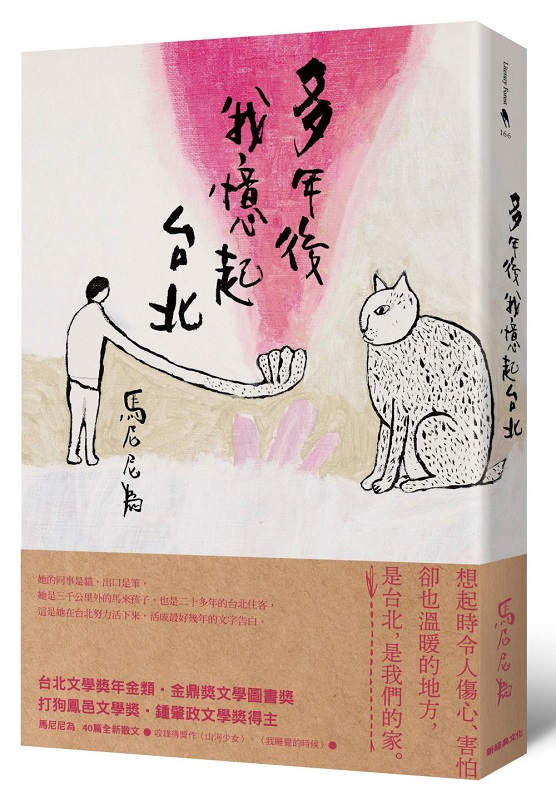 多年後
我憶起
台北
馬尼尼為
她的同事是貓,出口是筆,
她是三千公里外的馬來孩子,也是二十多年的台北住客,
這是她在台北努力活下來,活成最好幾年的文字告白。
台北文學獎年金類・金鼎獎文學圖書獎
打狗鳳邑文學獎・鍾肇政文學獎得主
馬尼尼為 40篇全新散文●收錄得獎作〈山河少女〉、〈我睡覺的時候〉●
想起時令人傷心、害怕
卻也溫暖的地方,
是台北,是我們的家。
Literary Forest
166
多年後我憶起台北
馬尼尼為
新經典文化